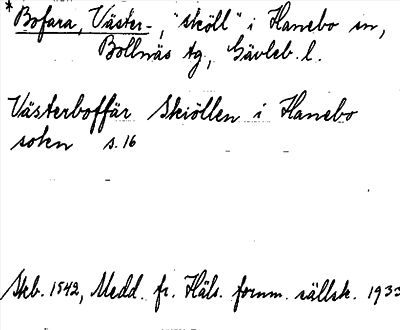 * Bofara, Väster-, "sköll" i Hanebo sn,
Bollnäs tg, Gävleb. l.
Västerboffär Skiöllen i Hanebo
soken s. 16
Skb. 1542, Medd. fr. Häls. fornm. sällsk. 1933